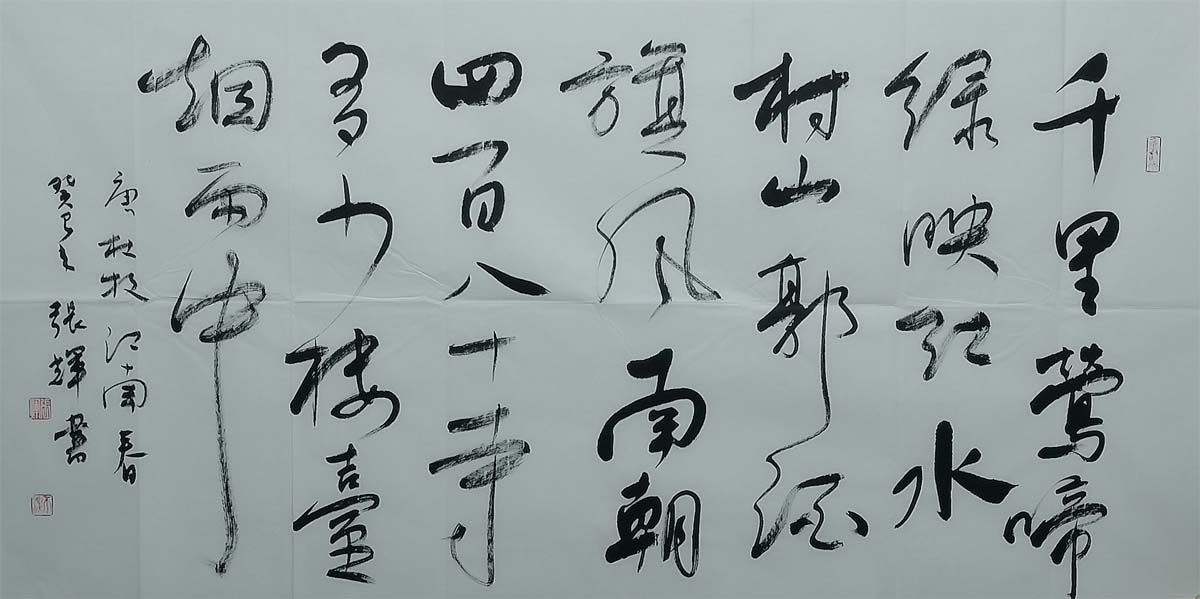 千里莺啼
绿映红水
村山郭酒
旗风南朝
四百八十寺
多少楼臺
烟雨中
唐杜牧江南春
癸巳年張輝書